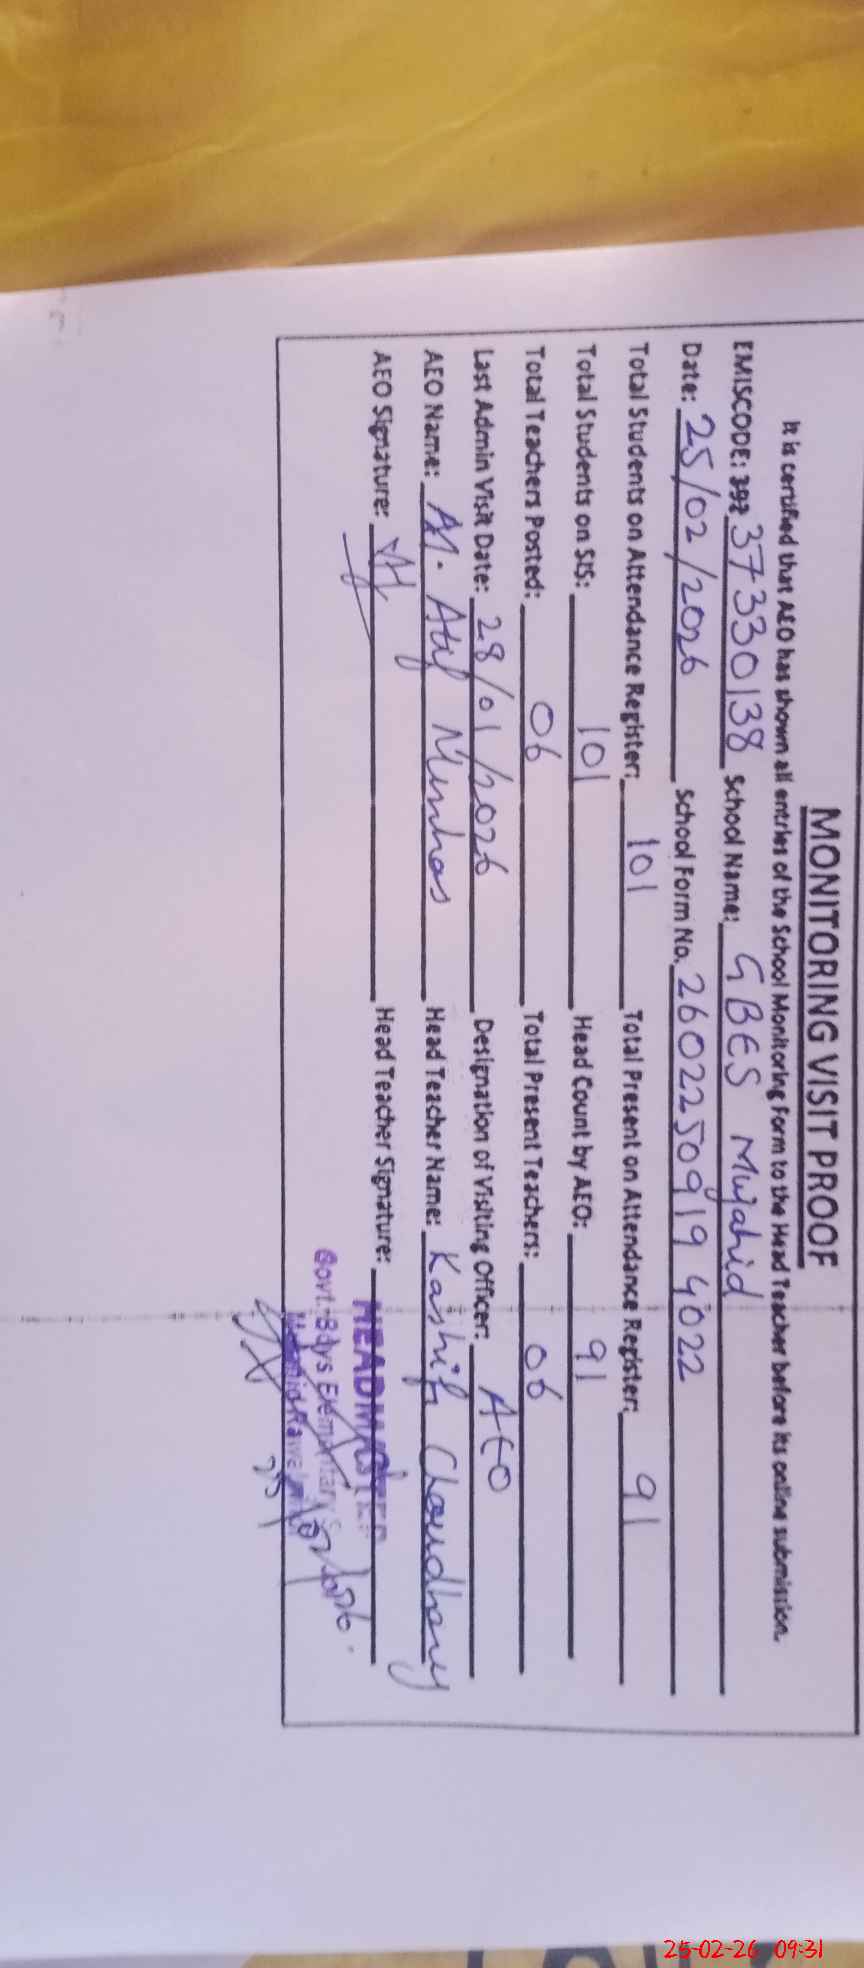 MONITORING VISIT PROOF
It is certified that AEO has shown all entries of the School Monitoring Form to the Head Teacher before its online submission.
EMISCODE: 373 37330138 School Name: GBES Mujahid
Date: 25/02/2026 School Form No. 26022509194022
Total Students on Attendance Register: 101 Total Present on Attendance Register: 91
Total Students on SIS: 101 Head Count by AEO: 91
Total Teachers Posted: 06 Total Present Teachers: 06
Last Admin Visit Date: 28/01/2026 Designation of Visiting Officer: AEO
AEO Name: M. Atif Minhas Head Teacher Name: Kashif Choudhary
AEO Signature: Head Teacher Signature:
HEADMASTER
Govt. Boys Elementary
25-02-26 09:31